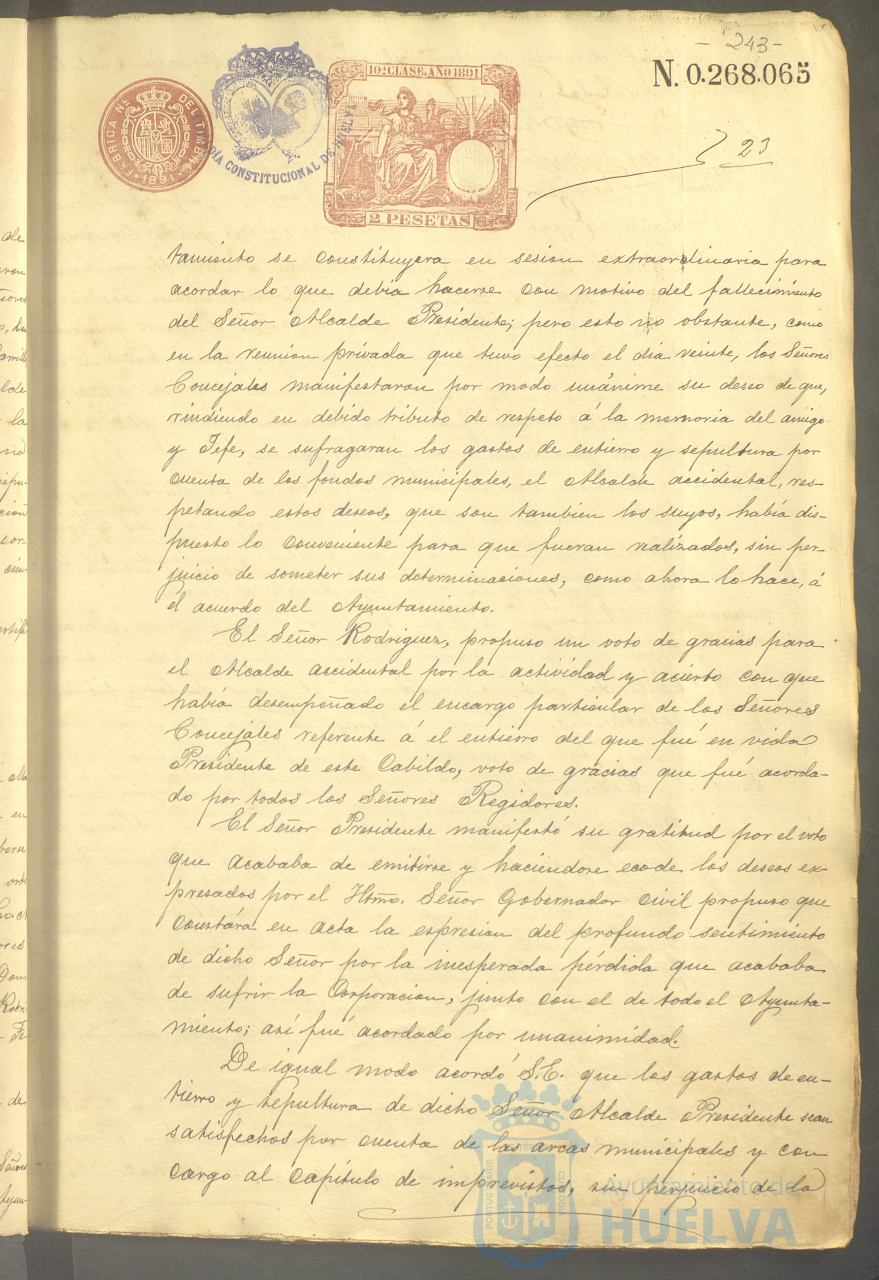 - 243 -
N. 0.268.065
FÁBRICA NL. DEL TIMBRE
1891
DÍA CONSTITUCIONAL DE HUELVA
10ª CLASE. AÑO 1891
2 PESETAS
23
tamiento se constituyera en sesion extraordinaria para
acordar lo que debia hacerse con motivo del fallecimiento
del Señor Alcalde Presidente; pero esto no obstante, como
en la reunion privada que tuvo efecto el dia veinte, los Señores
Concejales manifestaron por modo unánime su deseo de que,
rindiendo en debido tributo de respeto á la memoria del amigo
y Jefe, se sufragaran los gastos de entierro y sepultura por
cuenta de los fondos municipales, el Alcalde accidental, res-
petando estos deseos, que son tambien los suyos, había dis-
puesto lo conveniente para que fueran realizados, sin per-
juicio de someter sus determinaciones, como ahora lo hace, á
el acuerdo del Ayuntamiento.
El Señor Rodriguez, propuso un voto de gracias para
el Alcalde accidental por la actividad y acierto con que
había desempeñado el encargo particular de los Señores
Concejales referente á el entierro del que fué en vida
Presidente de este Cabildo, voto de gracias que fué acorda-
do por todos los Señores Regidores.
El Señor Presidente manifestó su gratitud por el voto
que acababa de emitirse y haciendose eco de los deseos ex-
presados por el Iltmo. Señor Gobernador civil propuso que
constára en acta la espresion del profundo sentimiento
de dicho Señor por la inesperada pérdida que acababa
de sufrir la Corporacion, junto con el de todo el Ayunta-
miento; así fué acordado por unanimidad.
De igual modo acordó S.E. que los gastos de en-
tierro y sepultura de dicho Señor Alcalde Presidente sean
satisfechos por cuenta de las arcas municipales y con
cargo al Capítulo de imprevistos, sin perjuicio de la
Ayuntamiento de
HUELVA